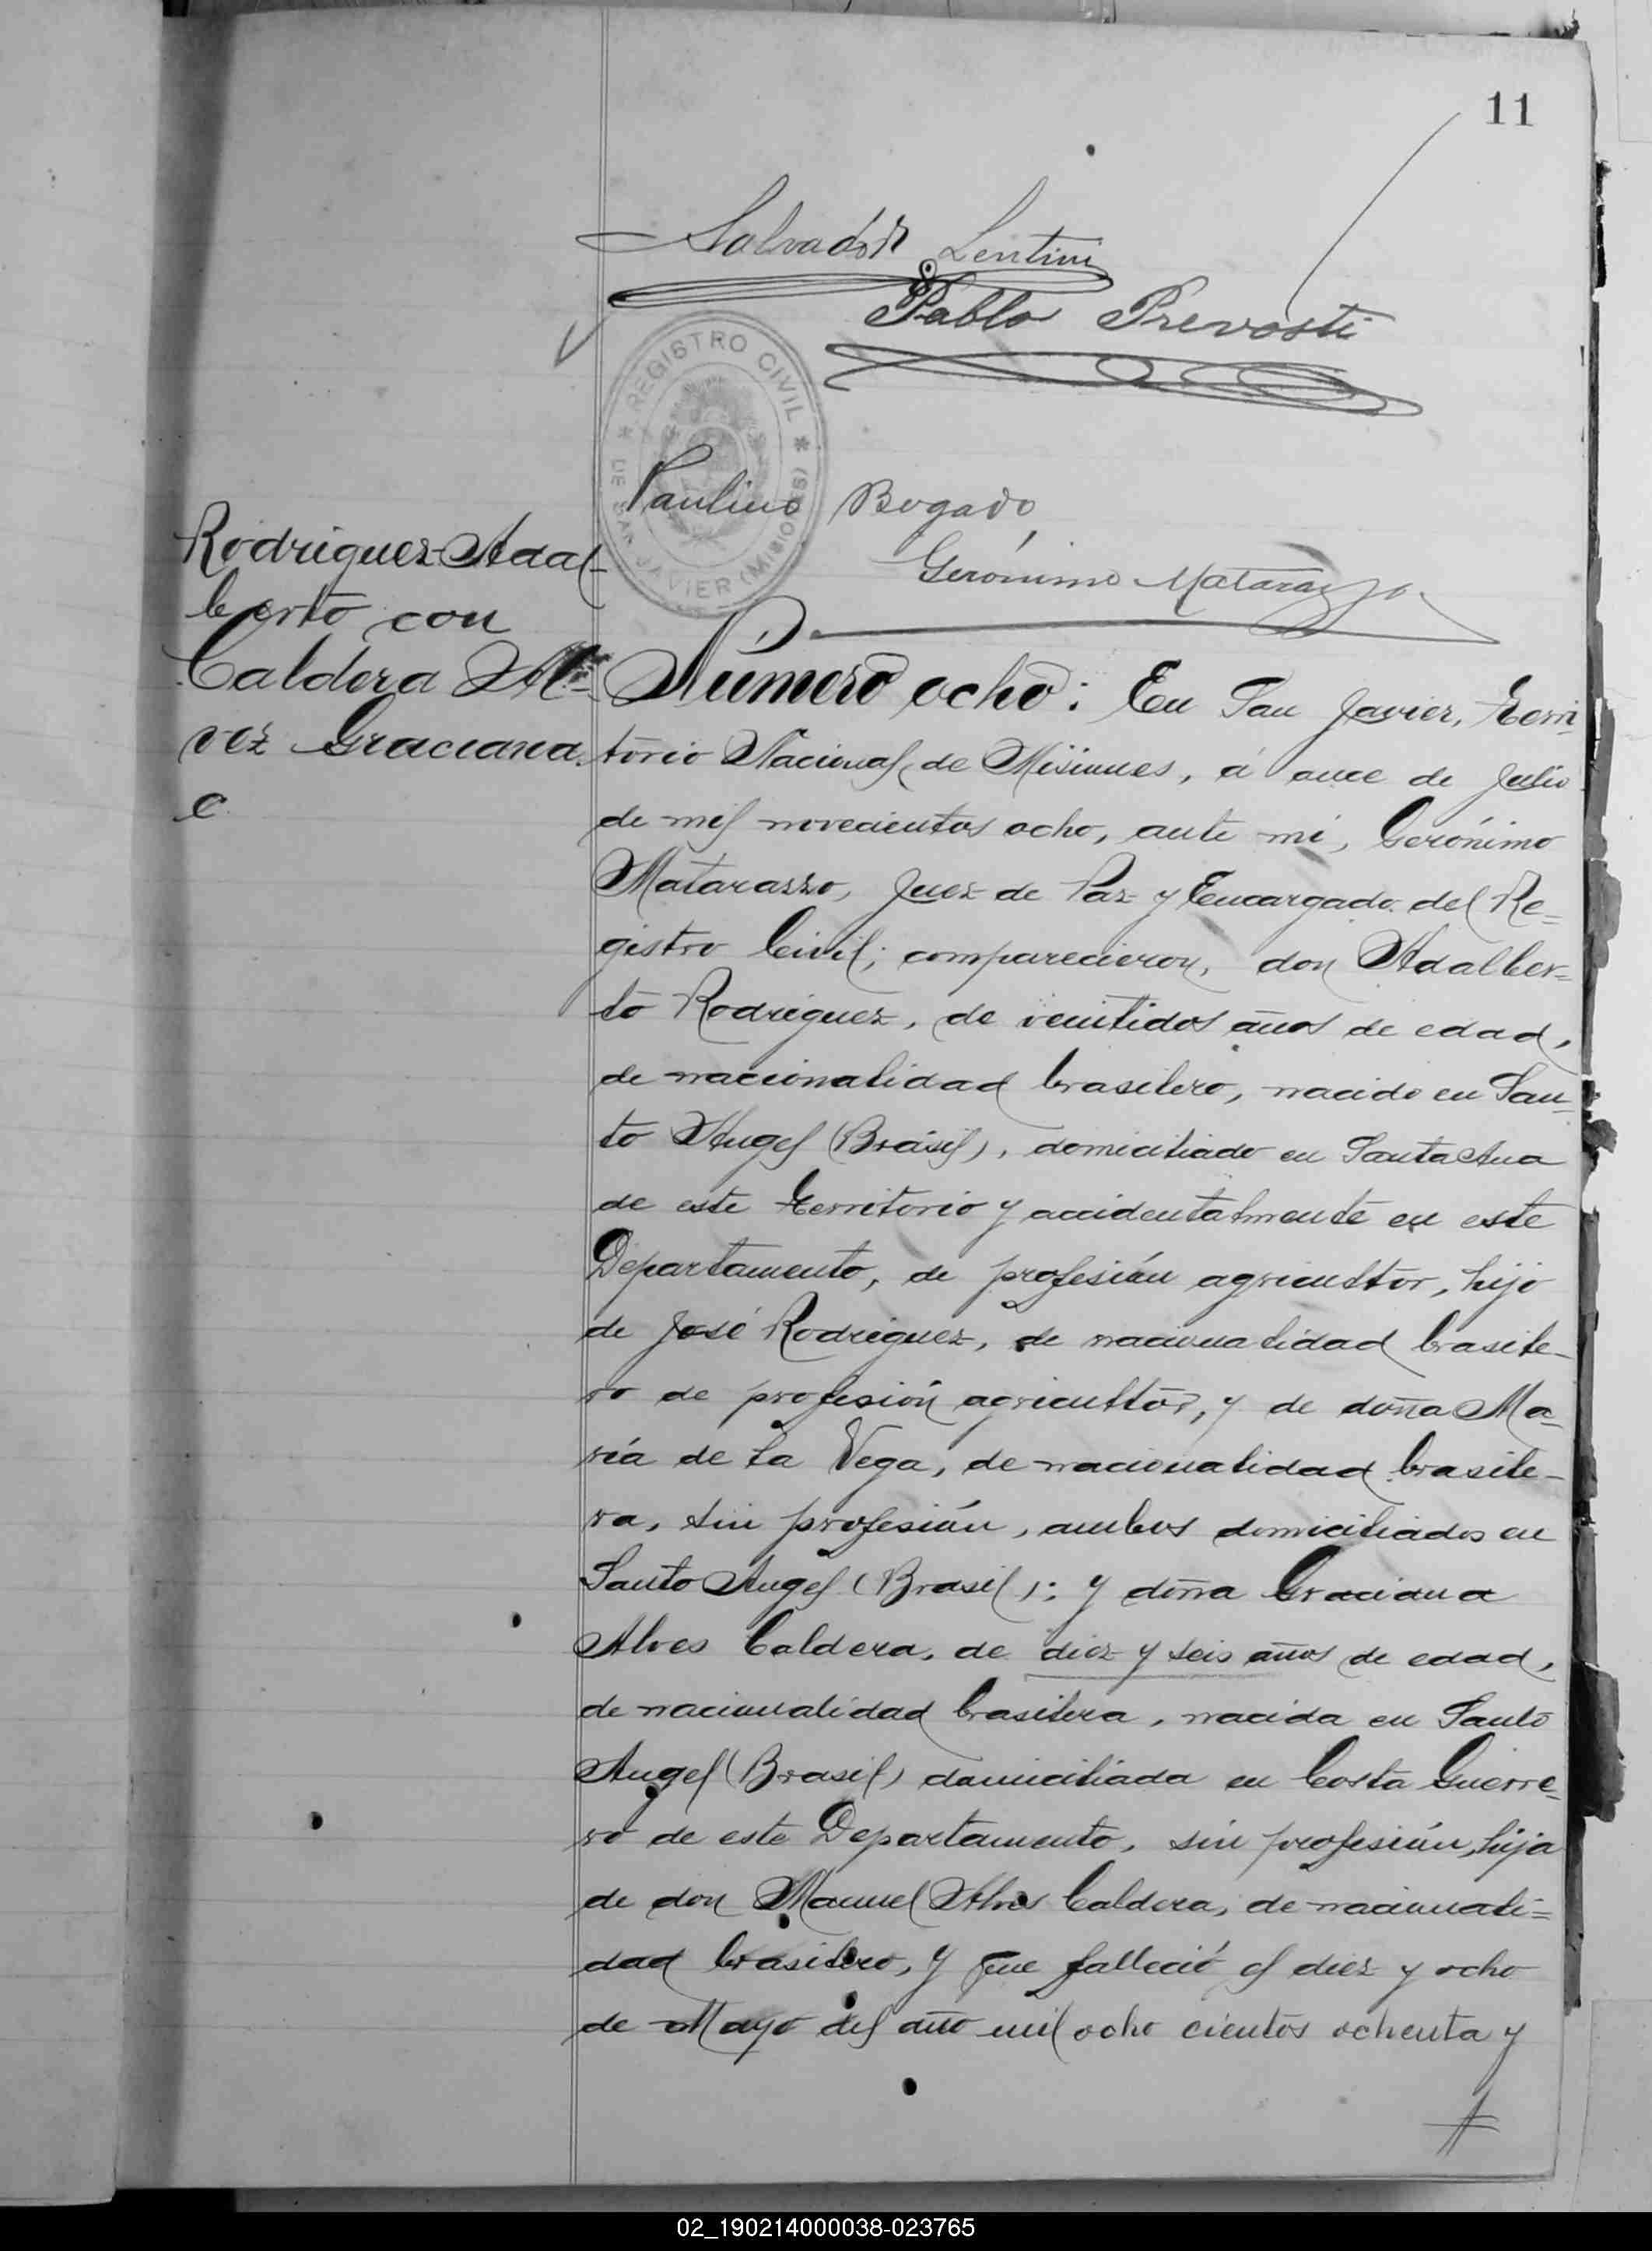 11
Salvador Lentini
Pablo Prevosti
* REGISTRO CIVIL *
DE SAN JAVIER (MISIONES)
Paulino Bogado
Gerónimo Matarazzo
Rodriguez Adal-
berto con
Caldera Al-
vez Graciana.
C.
Número ocho: En San Javier, Terri-
torio Nacional de Misiones, á once de Julio
de mil novecientos ocho, ante mi, Gerónimo
Matarazzo, Juez de Paz y Encargado del Re=
gistro Civil; comparecieron, don Adalber=
to Rodriguez, de veintidos años de edad,
de nacionalidad brasilero, nacido en San-
to Angel (Brasil), domiciliado en Santa Ana
de este territorio y accidentalmente en este
Departamento, de profesión agricultor, hijo
de José Rodriguez, de nacionalidad brasile-
ro de profesión agricultor, y de doña Ma=
ría de la Vega, de nacionalidad brasile-
ra, sin profesión, ambos domiciliados en
Santo Angel (Brasil); y doña Graciana
Alves Caldera, de diez y seis años de edad,
de nacionalidad brasilera, nacida en Santo
Angel (Brasil) domiciliada en Costa Guerre=
ro de este Departamento, sin profesión, hija
de don Manuel Alves Caldera, de nacionali=
dad brasilero, y que falleció el diez y ocho
de Mayo del año mil ocho cientos ochenta y
02_190214000038-023765